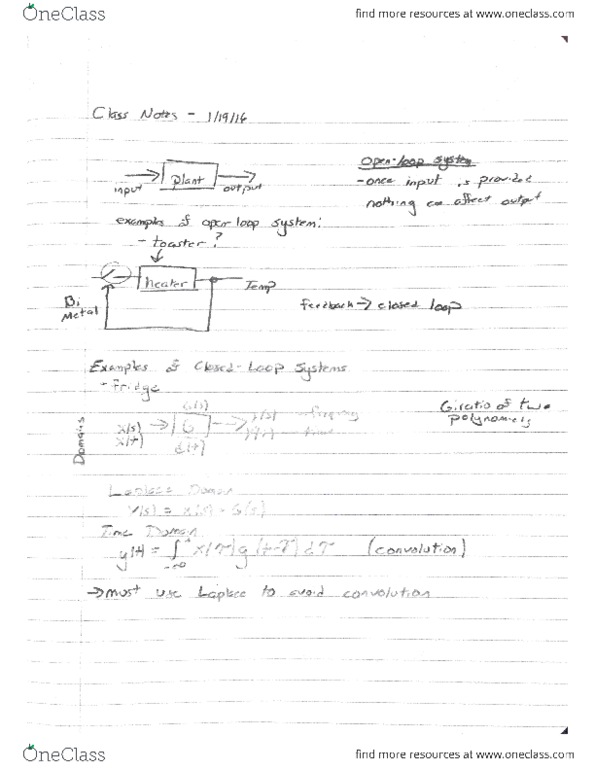 OneClass
find more resources at www.oneclass.com
Class Notes - 1/19/16
input
Plant
output
Open-loop system
- once input is provided
nothing can affect output
examples of open loop system:
- toaster?
heater
Temp
Bi
Metal
Feedback → closed loop
Examples of Closed-Loop Systems
- Fridge
G(s)
Domains
x(s)
x(t)
G
y(s)
y(t)
G: ratio of two
polynomials
Laplace Domain
Y(s) = X(s) · G(s)
Time Domain
y(t) = ∫ x(τ) g(t-τ) dτ (convolution)
→ must use Laplace to avoid convolution
OneClass
find more resources at www.oneclass.com